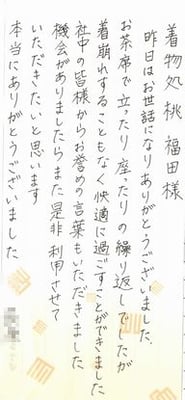 着物処 桃 福田様
昨日はお世話になりありがとうございました。
お茶席で立ったり座ったりの繰り返しでしたが
着崩れすることもなく快適に過ごすことができました
社中の皆様からお誉めの言葉もいただきました
機会がありましたらまた是非利用させて
いただきたいと思います
本当にありがとうございました